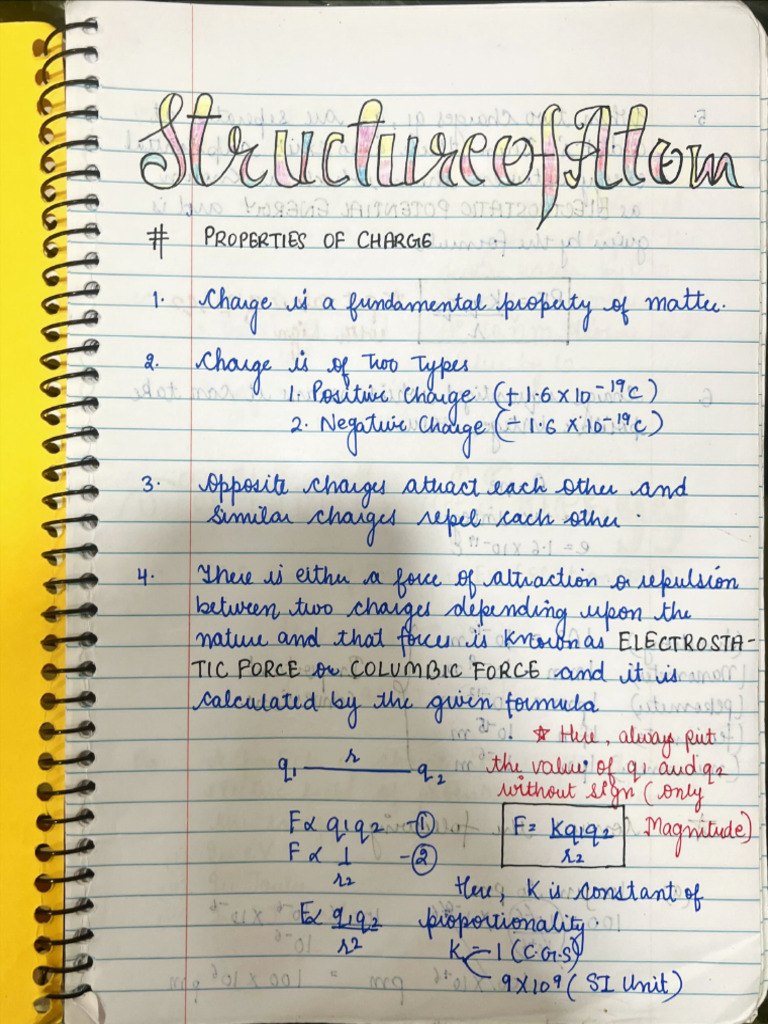 Structure of Atom
# PROPERTIES OF CHARGE
1. Charge is a fundamental property of matter.
2. Charge is of two types
1. Positive Charge (+1.6 x 10⁻¹⁹C)
2. Negative Charge (-1.6 x 10⁻¹⁹C)
3. Opposite charges attract each other and
similar charges repel each other.
4. There is either a force of attraction or repulsion
between two charges depending upon the
nature and that force is known as ELECTROSTA-
TIC FORCE or COLUMBIC FORCE and it is
calculated by the given formula
* Here, always put
q₁ r q₂ the value of q₁ and q₂
without sign (only
Magnitude)
F∝ q₁q₂ -①
F= Kq₁q₂/r²
F ∝ 1/r² -②
Here, K is constant of
F∝ q₁q₂/r² proportionality.
K = 1 (C.G.S)
9x10⁹ (SI Unit)